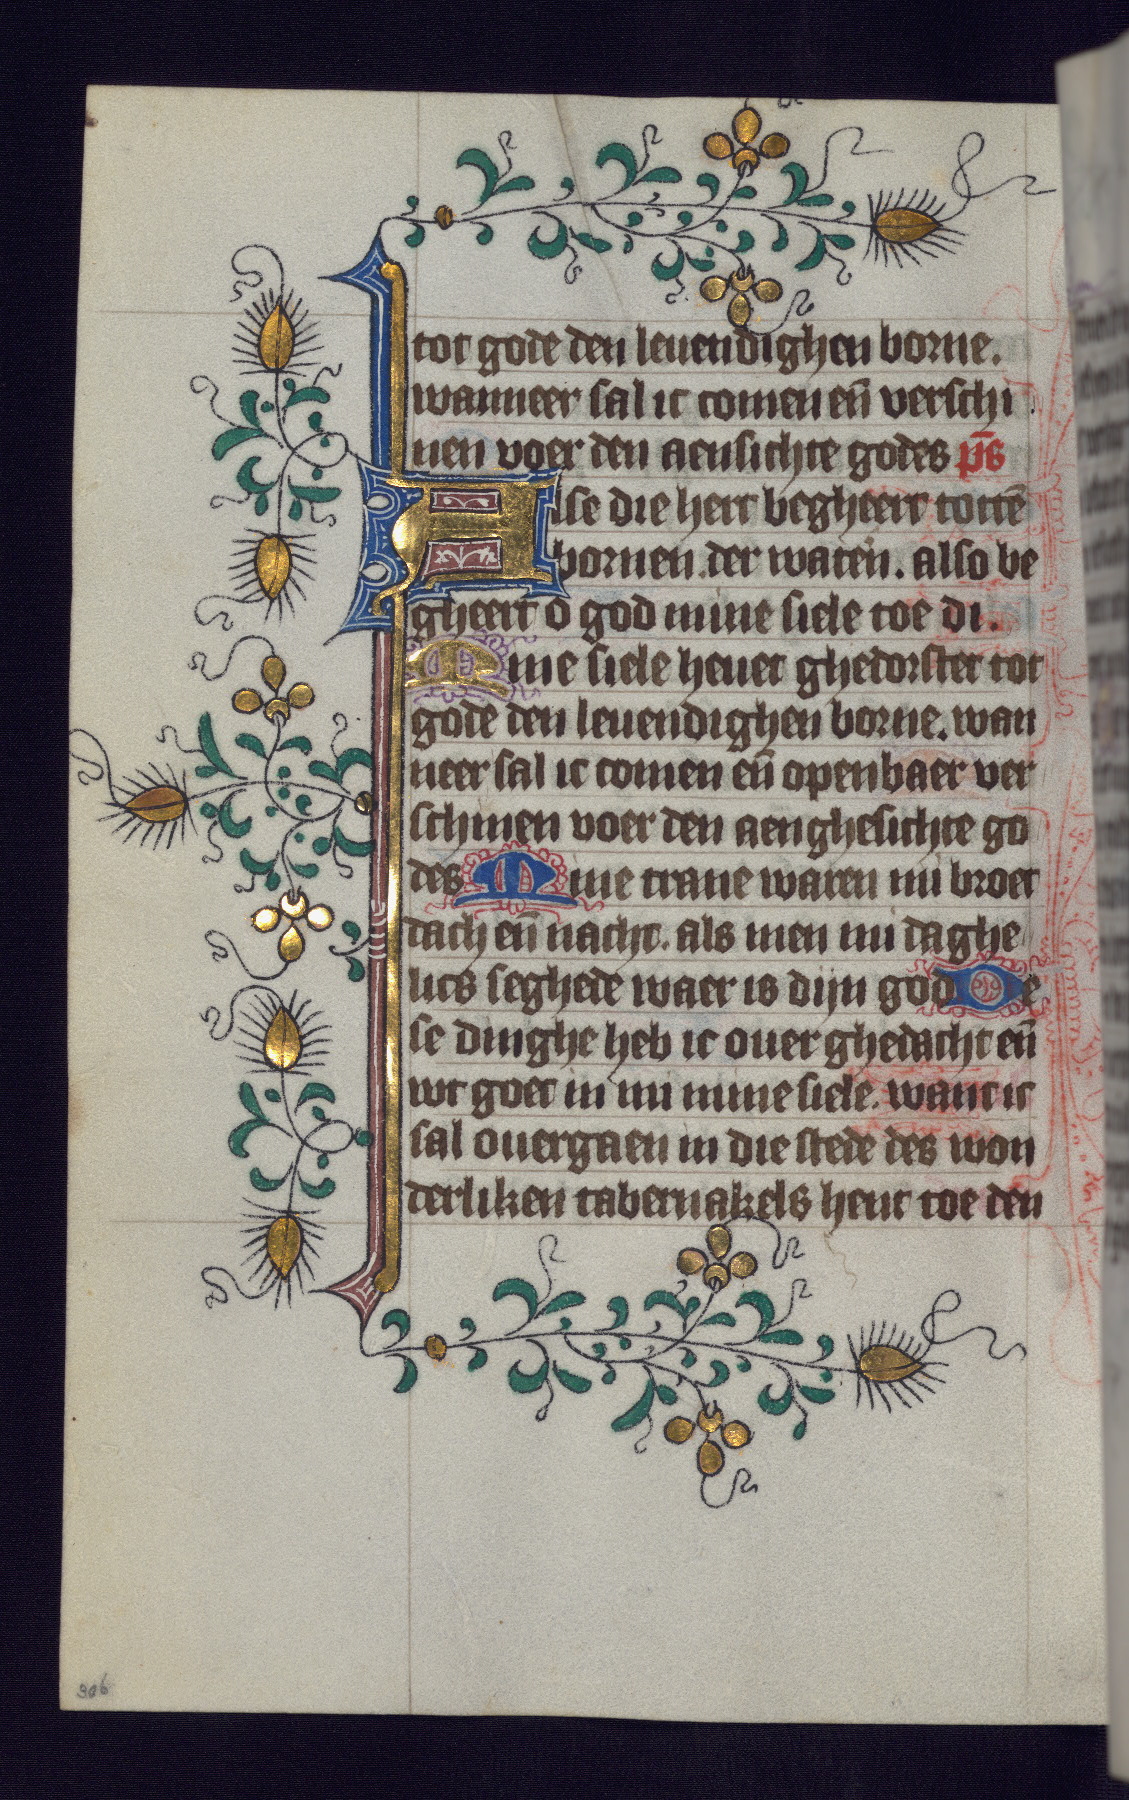 tot gode den leuendighen borne.
wanneer sal ic comen eñ verschi
nen voer den aensichte godes p̄s
Alse die hert begheert totte̅
bornen der wateren. also be
gheert o god mine siele toe di.
Mine siele heuet ghedorstet tot
gode den leuendighen borne. wan
neer sal ic comen eñ openbaer ver
schinen voer den aenghesichte go
des Mine trane waren mi broet
dach eñ nacht. als men mi daghe
lics seghede waer is dijn god De
se dinghe heb ic ouer ghedacht eñ
wt goet in mi mine siele. want ic
sal ouergaen in die stede des won
derliken tabernakels hent toe den
306